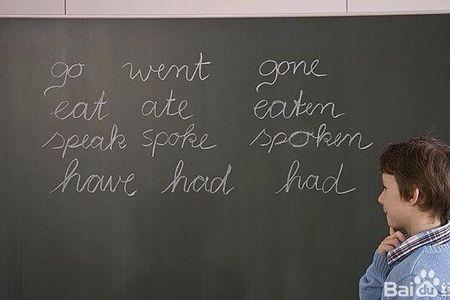 go went gone
eat ate eaten
speak spoke spoken
have had had
Bai